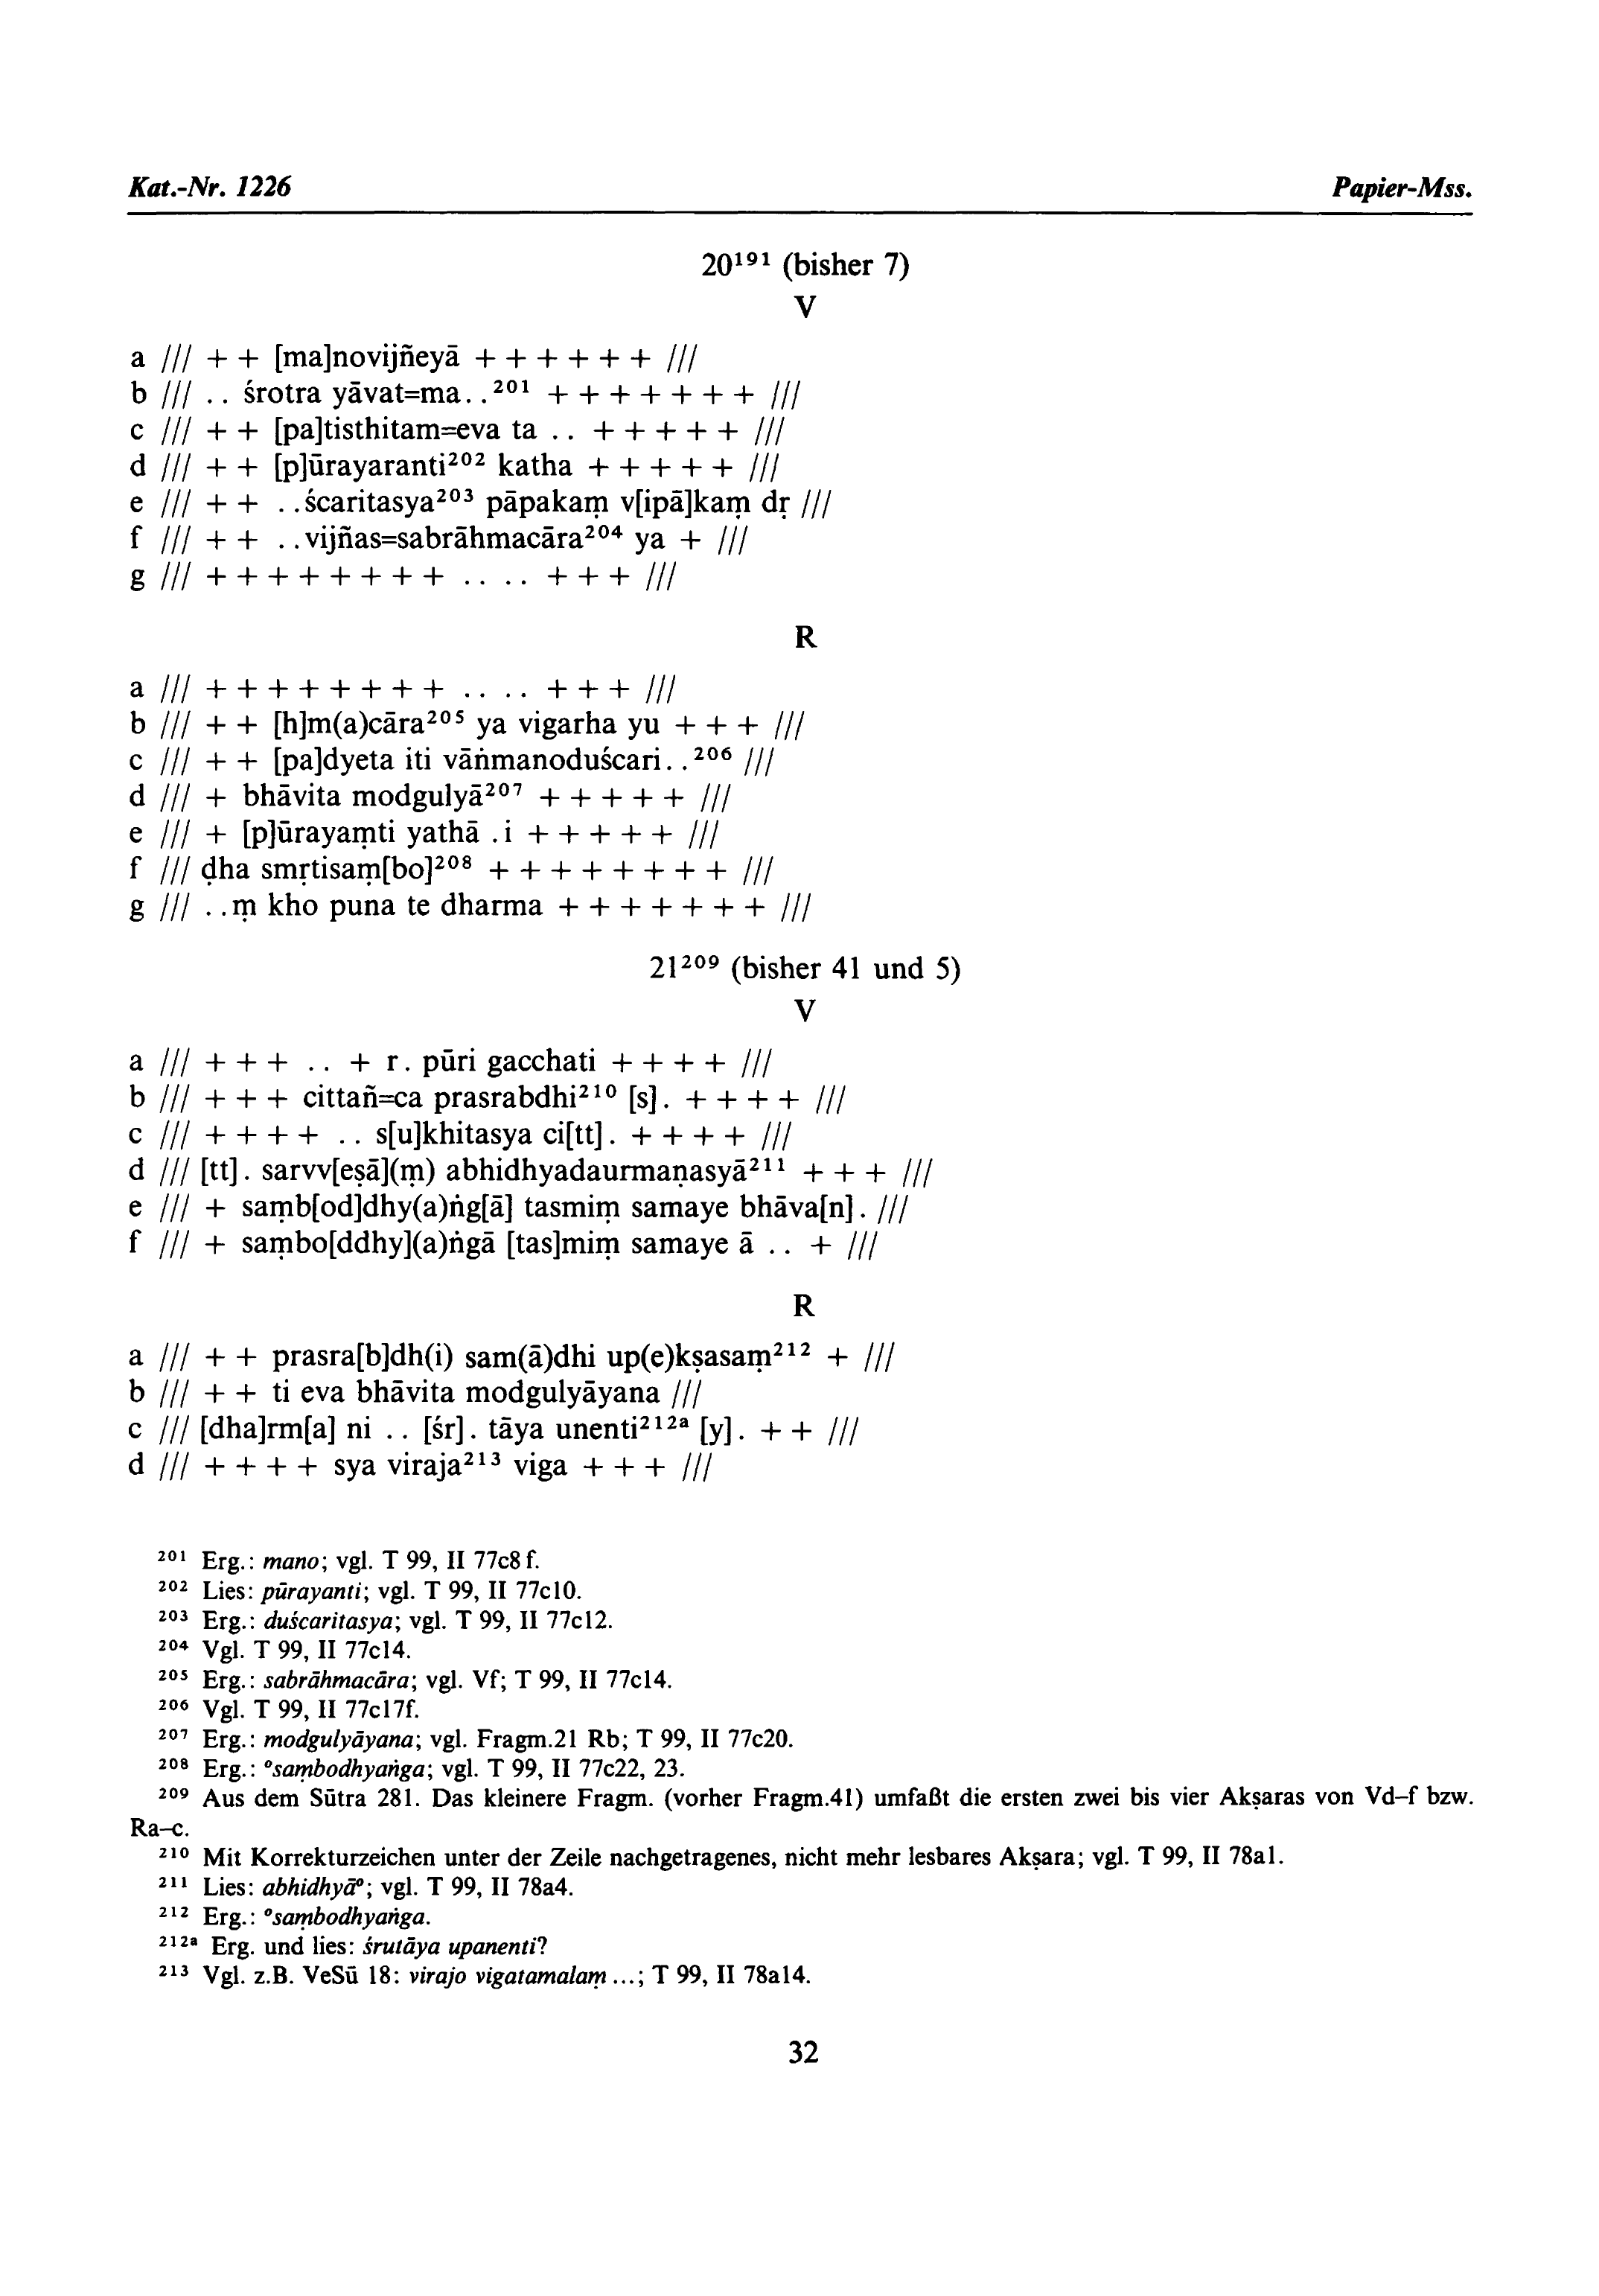 Kat.-Nr. 1226 Papier-Mss.
20¹⁹¹ (bisher 7)
V
a /// + + [ma]novijñeyā + + + + + + ///
b /// .. śrotra yāvat=ma..²⁰¹ + + + + + + + ///
c /// + + [pa]tisthitam=eva ta .. + + + + + ///
d /// + + [p]ūrayaranti²⁰² katha + + + + + ///
e /// + + ..ścaritasya²⁰³ pāpakaṃ v[ipā]kaṃ dṛ ///
f /// + + ..vijñas=sabrāhmacāra²⁰⁴ ya + ///
g /// + + + + + + + + .. .. + + + ///
R
a /// + + + + + + + + .. .. + + + ///
b /// + + [h]m(a)cāra²⁰⁵ ya vigarha yu + + + ///
c /// + + [pa]dyeta iti vāṅmanoduścari..²⁰⁶ ///
d /// + bhāvita modgulyā²⁰⁷ + + + + + ///
e /// + [p]ūrayaṃti yathā .i + + + + + ///
f /// ḍha smṛtisaṃ[bo]²⁰⁸ + + + + + + + + ///
g /// ..ṃ kho puna te dharma + + + + + + + ///
21²⁰⁹ (bisher 41 und 5)
V
a /// + + + .. + r. pūri gacchati + + + + ///
b /// + + + cittañ=ca prasrabdhi²¹⁰ [s]. + + + + ///
c /// + + + + .. s[u]khitasya ci[tt]. + + + + ///
d /// [tt]. sarvv[eṣā](ṃ) abhidhyadaurmaṇasyā²¹¹ + + + ///
e /// + saṃb[od]dhy(a)ṅg[ā] tasmiṃ samaye bhāva[n]. ///
f /// + saṃbo[ddhy](a)ṅgā [tas]miṃ samaye ā .. + ///
R
a /// + + prasra[b]dh(i) sam(ā)dhi up(e)kṣasaṃ²¹² + ///
b /// + + ti eva bhāvita modgulyāyana ///
c /// [dha]rm[a] ni .. [śr]. tāya unenti²¹²ᵃ [y]. + + ///
d /// + + + + sya viraja²¹³ viga + + + ///
²⁰¹ Erg.: mano; vgl. T 99, II 77c8 f.
²⁰² Lies: pūrayanti; vgl. T 99, II 77c10.
²⁰³ Erg.: duścaritasya; vgl. T 99, II 77c12.
²⁰⁴ Vgl. T 99, II 77c14.
²⁰⁵ Erg.: sabrāhmacāra; vgl. Vf; T 99, II 77c14.
²⁰⁶ Vgl. T 99, II 77c17f.
²⁰⁷ Erg.: modgulyāyana; vgl. Fragm.21 Rb; T 99, II 77c20.
²⁰⁸ Erg.: °saṃbodhyaṅga; vgl. T 99, II 77c22, 23.
²⁰⁹ Aus dem Sūtra 281. Das kleinere Fragm. (vorher Fragm.41) umfaßt die ersten zwei bis vier Akṣaras von Vd–f bzw.
Ra–c.
²¹⁰ Mit Korrekturzeichen unter der Zeile nachgetragenes, nicht mehr lesbares Akṣara; vgl. T 99, II 78a1.
²¹¹ Lies: abhidhyā°; vgl. T 99, II 78a4.
²¹² Erg.: °saṃbodhyaṅga.
²¹²ᵃ Erg. und lies: śrutāya upanenti?
²¹³ Vgl. z.B. VeSū 18: virajo vigatamalaṃ ...; T 99, II 78a14.
32